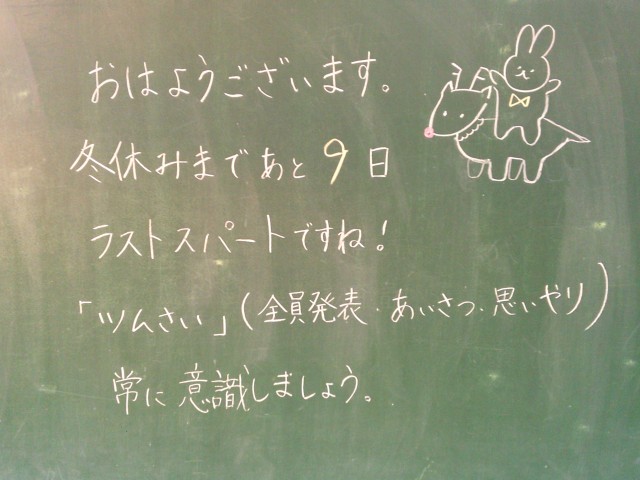 おはようございます。
冬休みまであと9日
ラストスパートですね!
「ツムさい」(全員発表・あいさつ・思いやり)
常に意識しましょう。